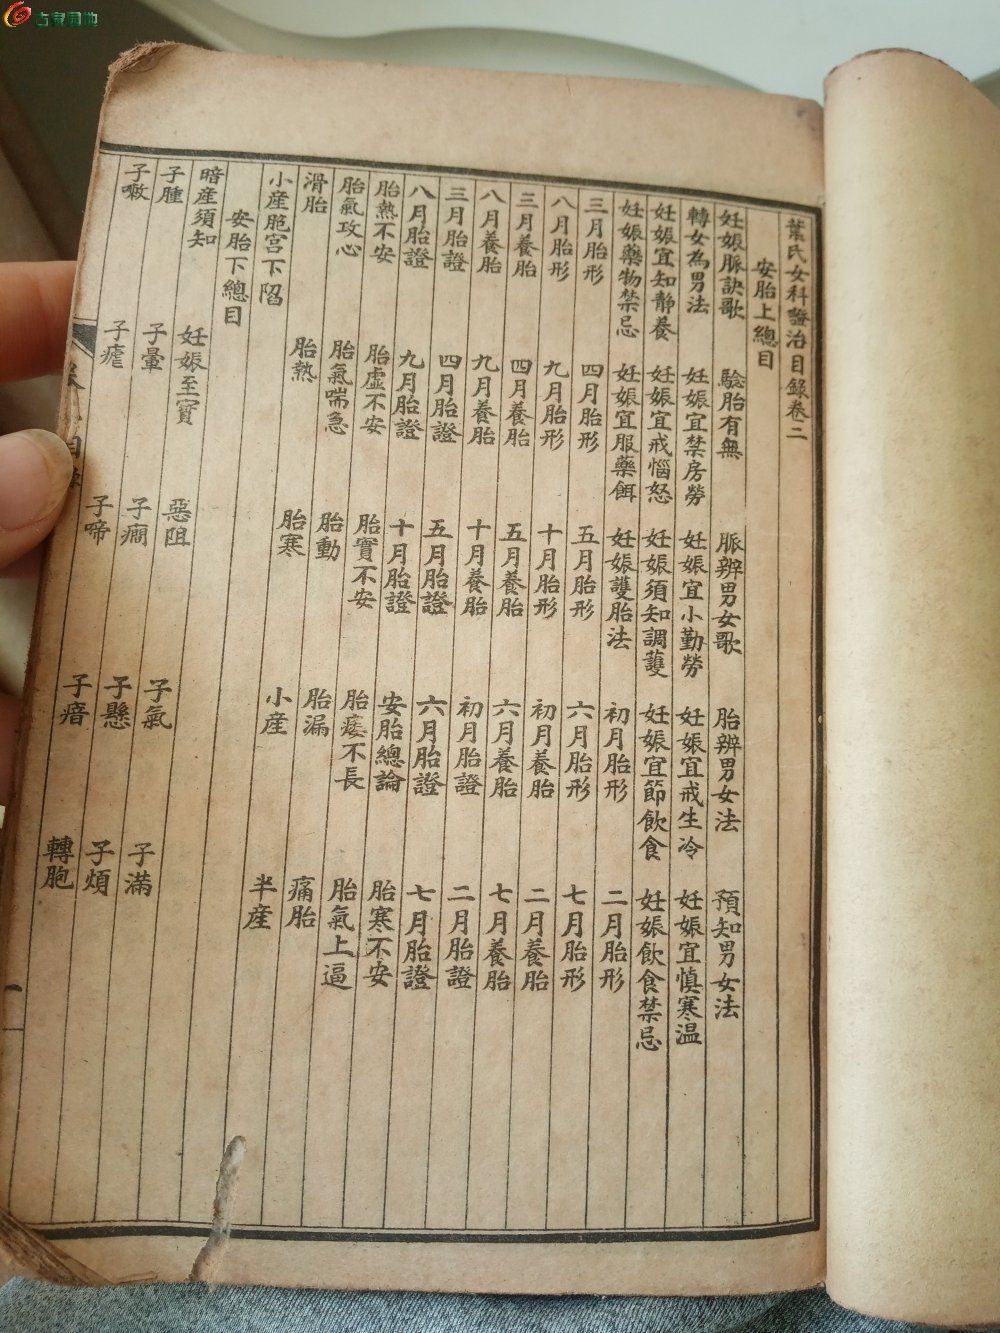 古家園地
葉氏女科證治目錄卷二
安胎上總目
妊娠脈訣歌 驗胎有無 脈辨男女歌 胎辨男女法 預知男女法
轉女為男法 妊娠宜禁房勞 妊娠宜小勤勞 妊娠宜戒生冷 妊娠宜慎寒温
妊娠宜知靜養 妊娠宜戒惱怒 妊娠須知調護 妊娠宜節飲食 妊娠飲食禁忌
妊娠藥物禁忌 妊娠宜服藥餌 妊娠護胎法
三月胎形 四月胎形 五月胎形 初月胎形 二月胎形
八月胎形 九月胎形 十月胎形 六月胎形 七月胎形
三月養胎 四月養胎 五月養胎 初月養胎 二月養胎
八月養胎 九月養胎 十月養胎 六月養胎 七月養胎
三月胎證 四月胎證 五月胎證 初月胎證 二月胎證
八月胎證 九月胎證 十月胎證 六月胎證 七月胎證
胎熱不安 胎虛不安 胎實不安 安胎總論 胎寒不安
胎氣攻心 胎氣喘急 胎動 胎痿不長 胎氣上逼
滑胎 胎熱 胎寒 胎漏 痛胎
小産胞宮下陷 小産 半産
安胎下總目
暗産須知 妊娠至寳 惡阻 子氣 子滿
子腫 子暈 子癇 子懸 子煩
子嗽 子瘧 子啼 子瘖 轉胞
一